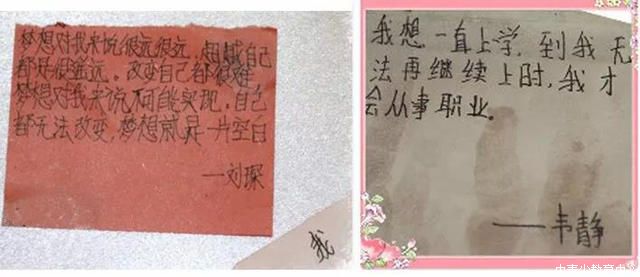 梦想对我来说很远很远,超越自己
都好很遥远。改变自己都很难
梦想对我来说不可能实现。自己
都无法改变,梦想就是一片空白
—刘琛
我
我想一直上学,到我无
法再继续上时,我才
会从事职业。
——韦静